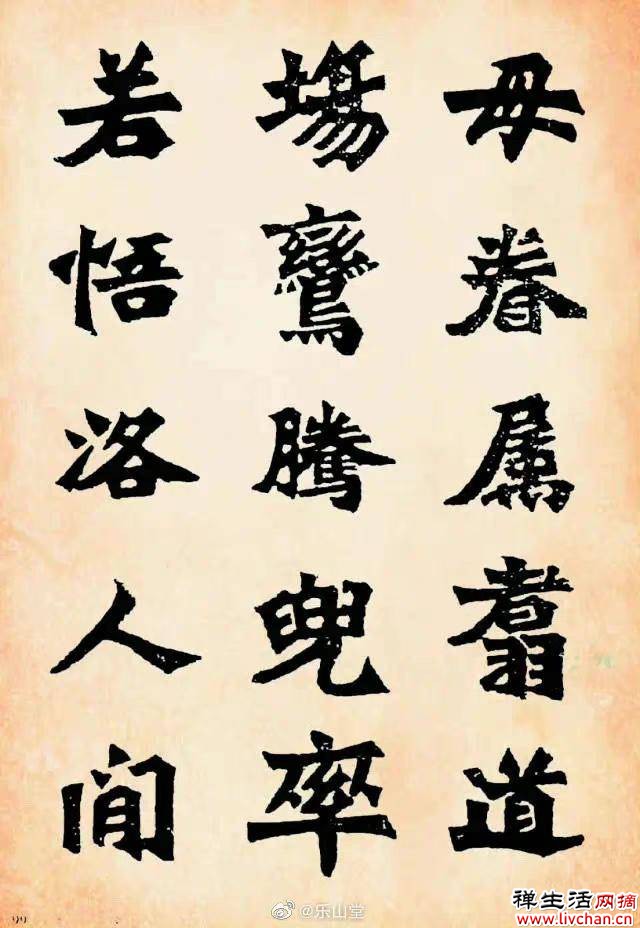 母眷属翥道
場鸞騰兜率
若悟洛人間
99
@乐山堂
禅生活网摘
www.livchan.cn